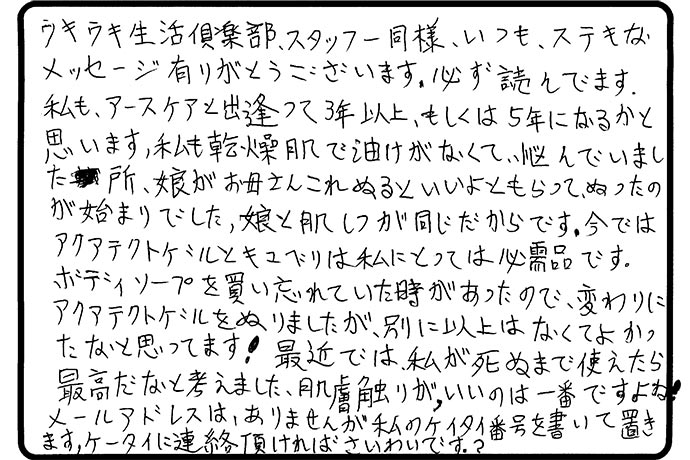 ウキウキ生活倶楽部、スタッフ一同様、いつも、ステキな
メッセージ有りがとうございます。必ず読んでます。
私も、アースケアと出逢って3年以上、もしくは5年になるかと
思います,私も乾燥肌で油けがなくて、悩んでいまし
た 所、娘がお母さんこれぬるといいよともらって、ぬったの
が始まりでした,娘と肌しつが同じだからです。今では
アクアテクトゲルとキュベリは私にとっては必需品です。
ボディソープを買い忘れていた時があったので、変わりに
アクアテクトゲルをぬりましたが、別に以上はなくてよかっ
たなと思ってます! 最近では、私が死ぬまで使えたら
最高だなと考えました、肌膚触りが,いいのは一番ですよね!
メールアドレスは,ありませんが私のケイタイ番号を書いて置き
ます,ケータイに連絡頂ければさいわいです。?